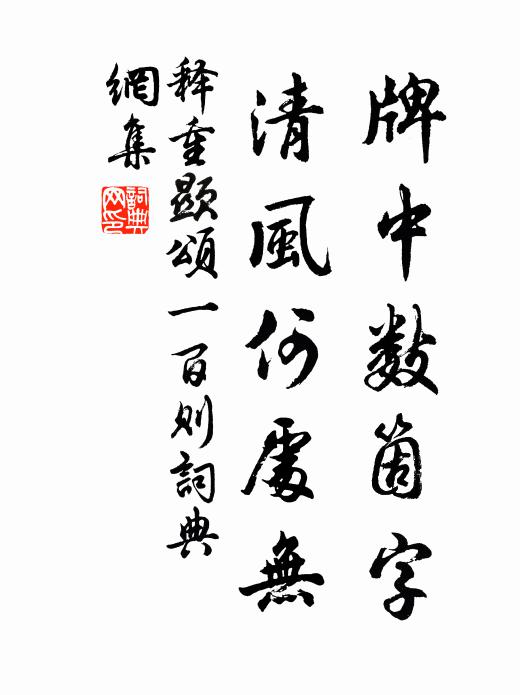 牌中數箇字
清風何處無
释重顯頌一百則詞典
網集
詞典网印